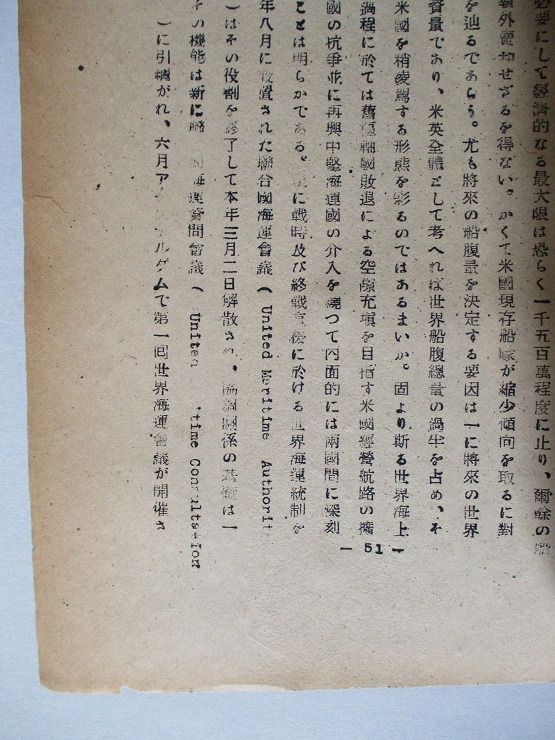 必要にして經濟的なる最大限は恐らく一千五百萬程度に止り、爾餘の
外賣却せざるを得ない。かくて米國現存船隊が縮少傾向を取るに對
を辿るであらう。尤も將來の船腹量を決定する要因は一に將來の世界
資量であり、米英全體として考へれば世界船腹總量の過半を占め、そ
米國を稍凌駕する形態を彩るのではあるまいか。固より斯る世界海上
過程に於ては舊樞軸國敗退による空隙充塡を目指す米國經營航路の擴
國の抗爭並に再興中堅海運國の介入を繞つて內面的には兩國間に深刻
ことは明らかである。に戰時及び終戰直後に於ける世界海運統制を
年八月に設置された聯合國海運會議（United Maritime Authorit
）はその役割を終了して本年三月二日解散され、協調關係の基礎は一
その機能は新に 海運諮問會議（United time Consultation
）に引繼がれ、六月アムステルダムで第一回世界海運會議が開催さ
— 51 —